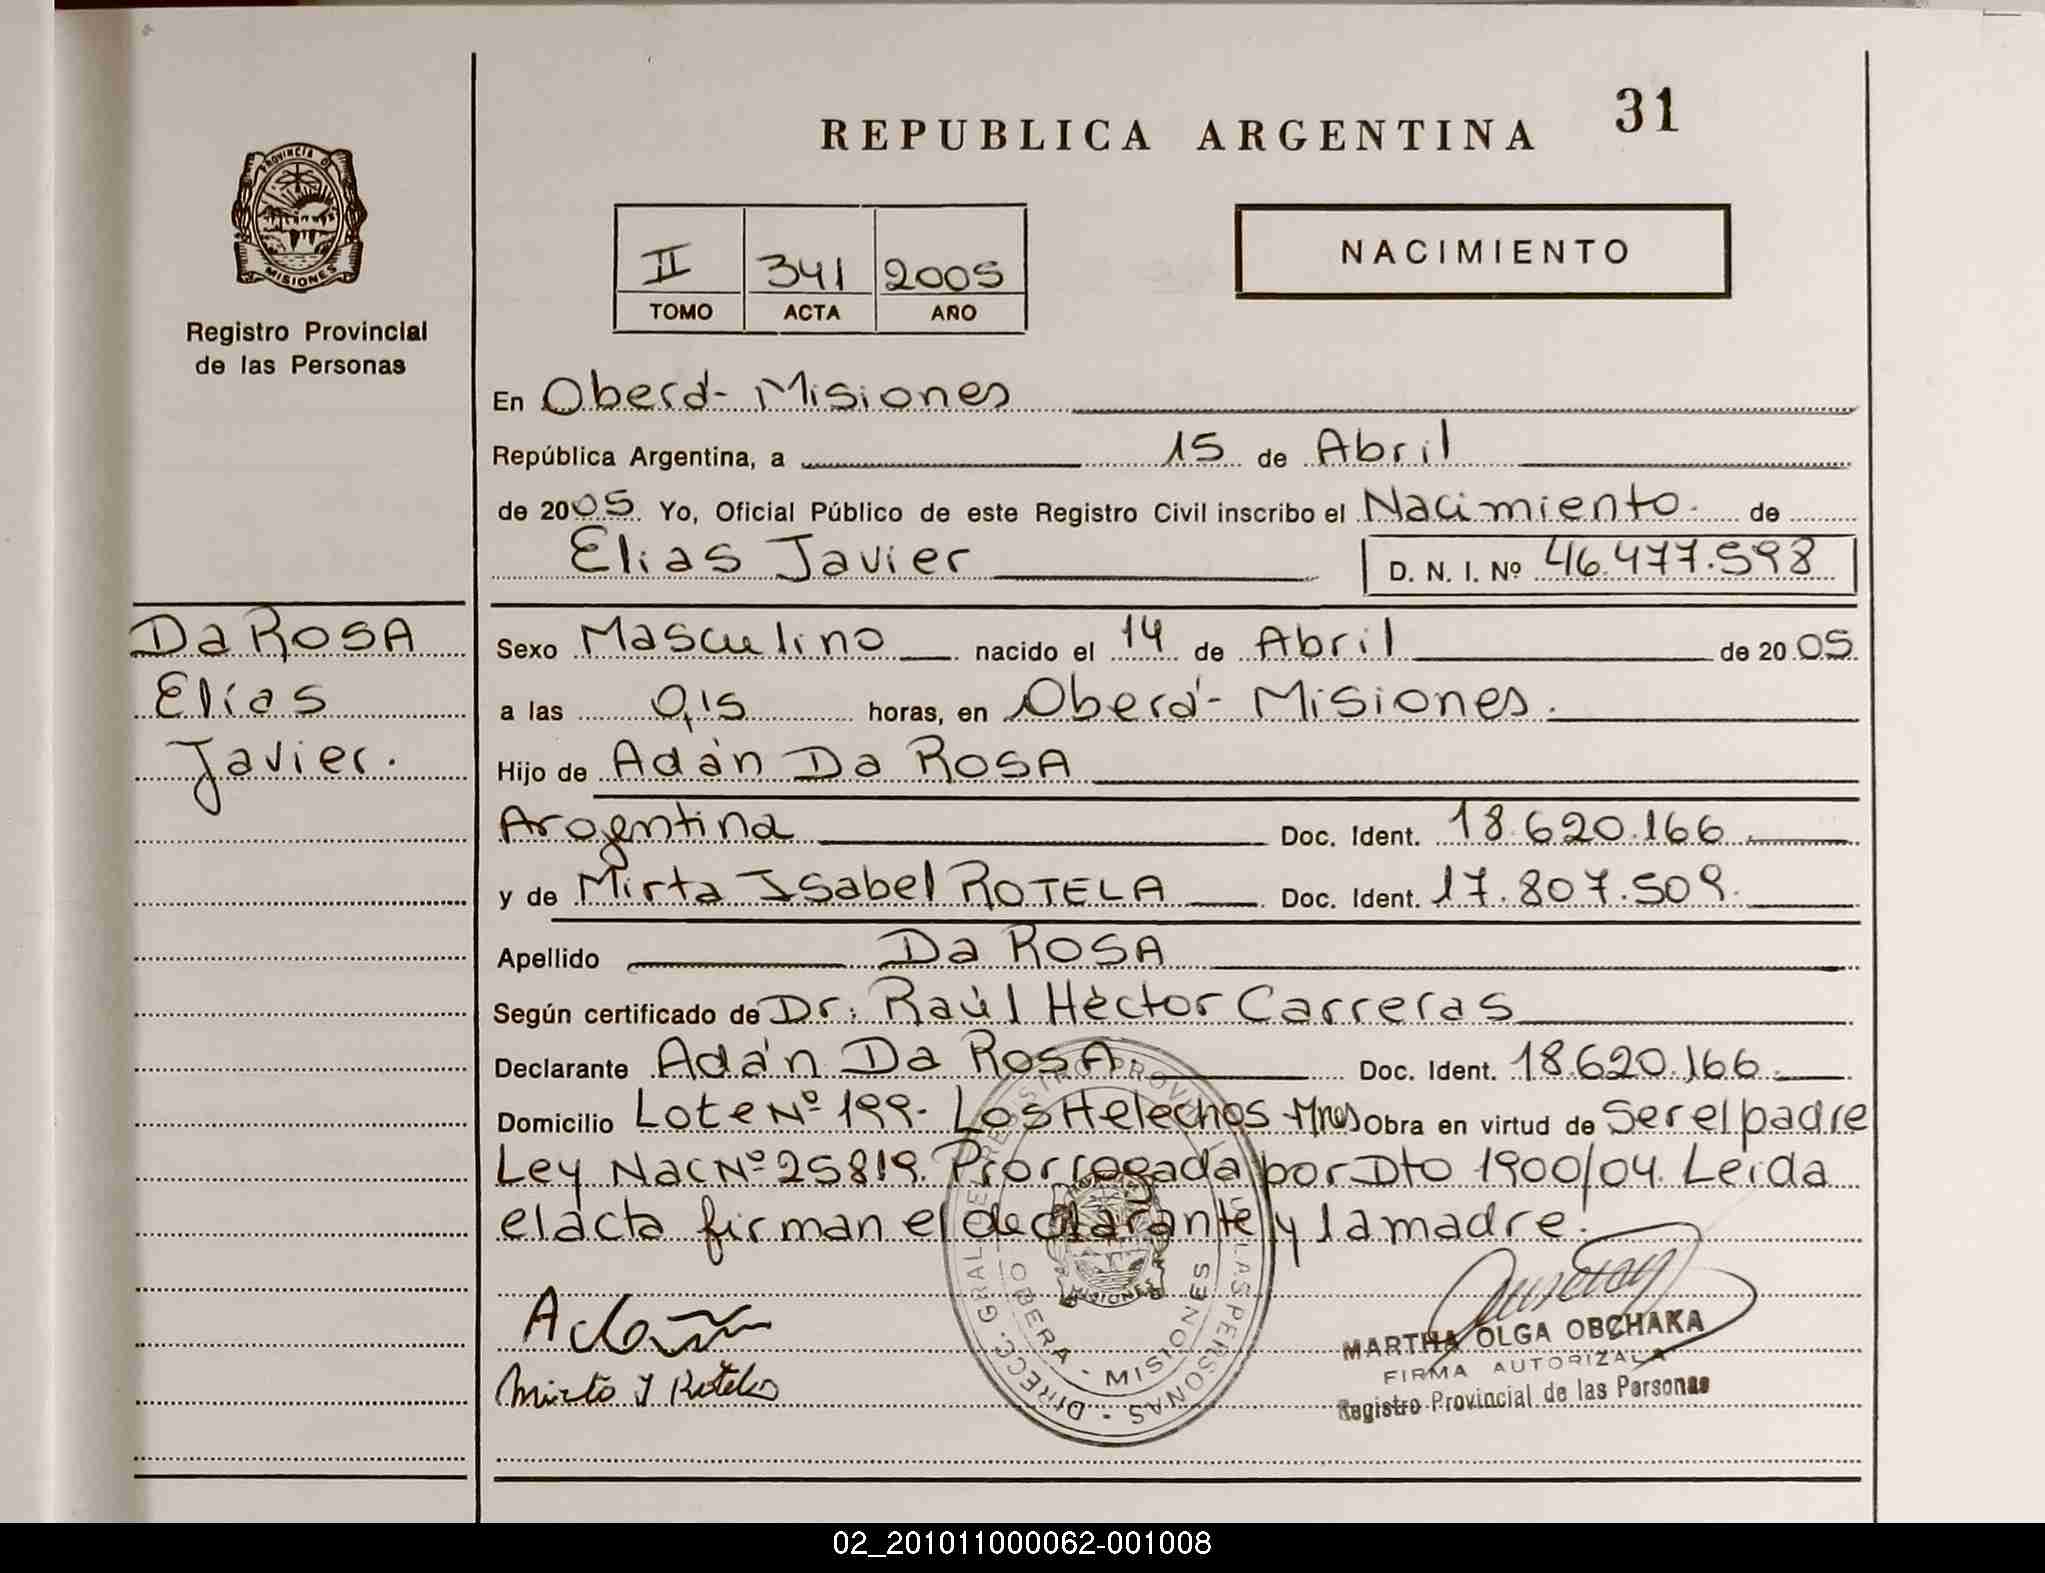 REPUBLICA ARGENTINA 31
PROVINCIA DE
MISIONES
Registro Provincial
de las Personas
II 341 2005
TOMO ACTA AÑO
NACIMIENTO
En Oberá - Misiones
República Argentina, a 15 de Abril
de 2005 Yo, Oficial Público de este Registro Civil inscribo el Nacimiento. de
Elias Javier D. N. I. Nº 46.477.598
Da ROSA
Elías
Javier.
Sexo Masculino nacido el 14 de Abril de 2005
a las 0,15 horas, en Oberá - Misiones.
Hijo de Adán Da ROSA
Argentina Doc. Ident. 18.620.166
y de Mirta Isabel ROTELA Doc. Ident. 17.807.509.
Apellido Da ROSA
Según certificado de Dr. Raúl Héctor Carreras
Declarante Adán Da ROSA. Doc. Ident. 18.620.166.
Domicilio Lote Nº 199. Los Helechos Mnes Obra en virtud de Ser el padre
Ley Nac Nº 25819. Prorrogada por Dto 1900/04. Leida
el acta firman el declarante y la madre.
Mirta I Rotela
DIRECC. GRAL. DE REGISTRO PROVINCIAL DE LAS PERSONAS
OBERA - MISIONES
MISIONES
MARTHA OLGA OBCHAKA
FIRMA AUTORIZADA
Registro Provincial de las Personas
02_201011000062-001008